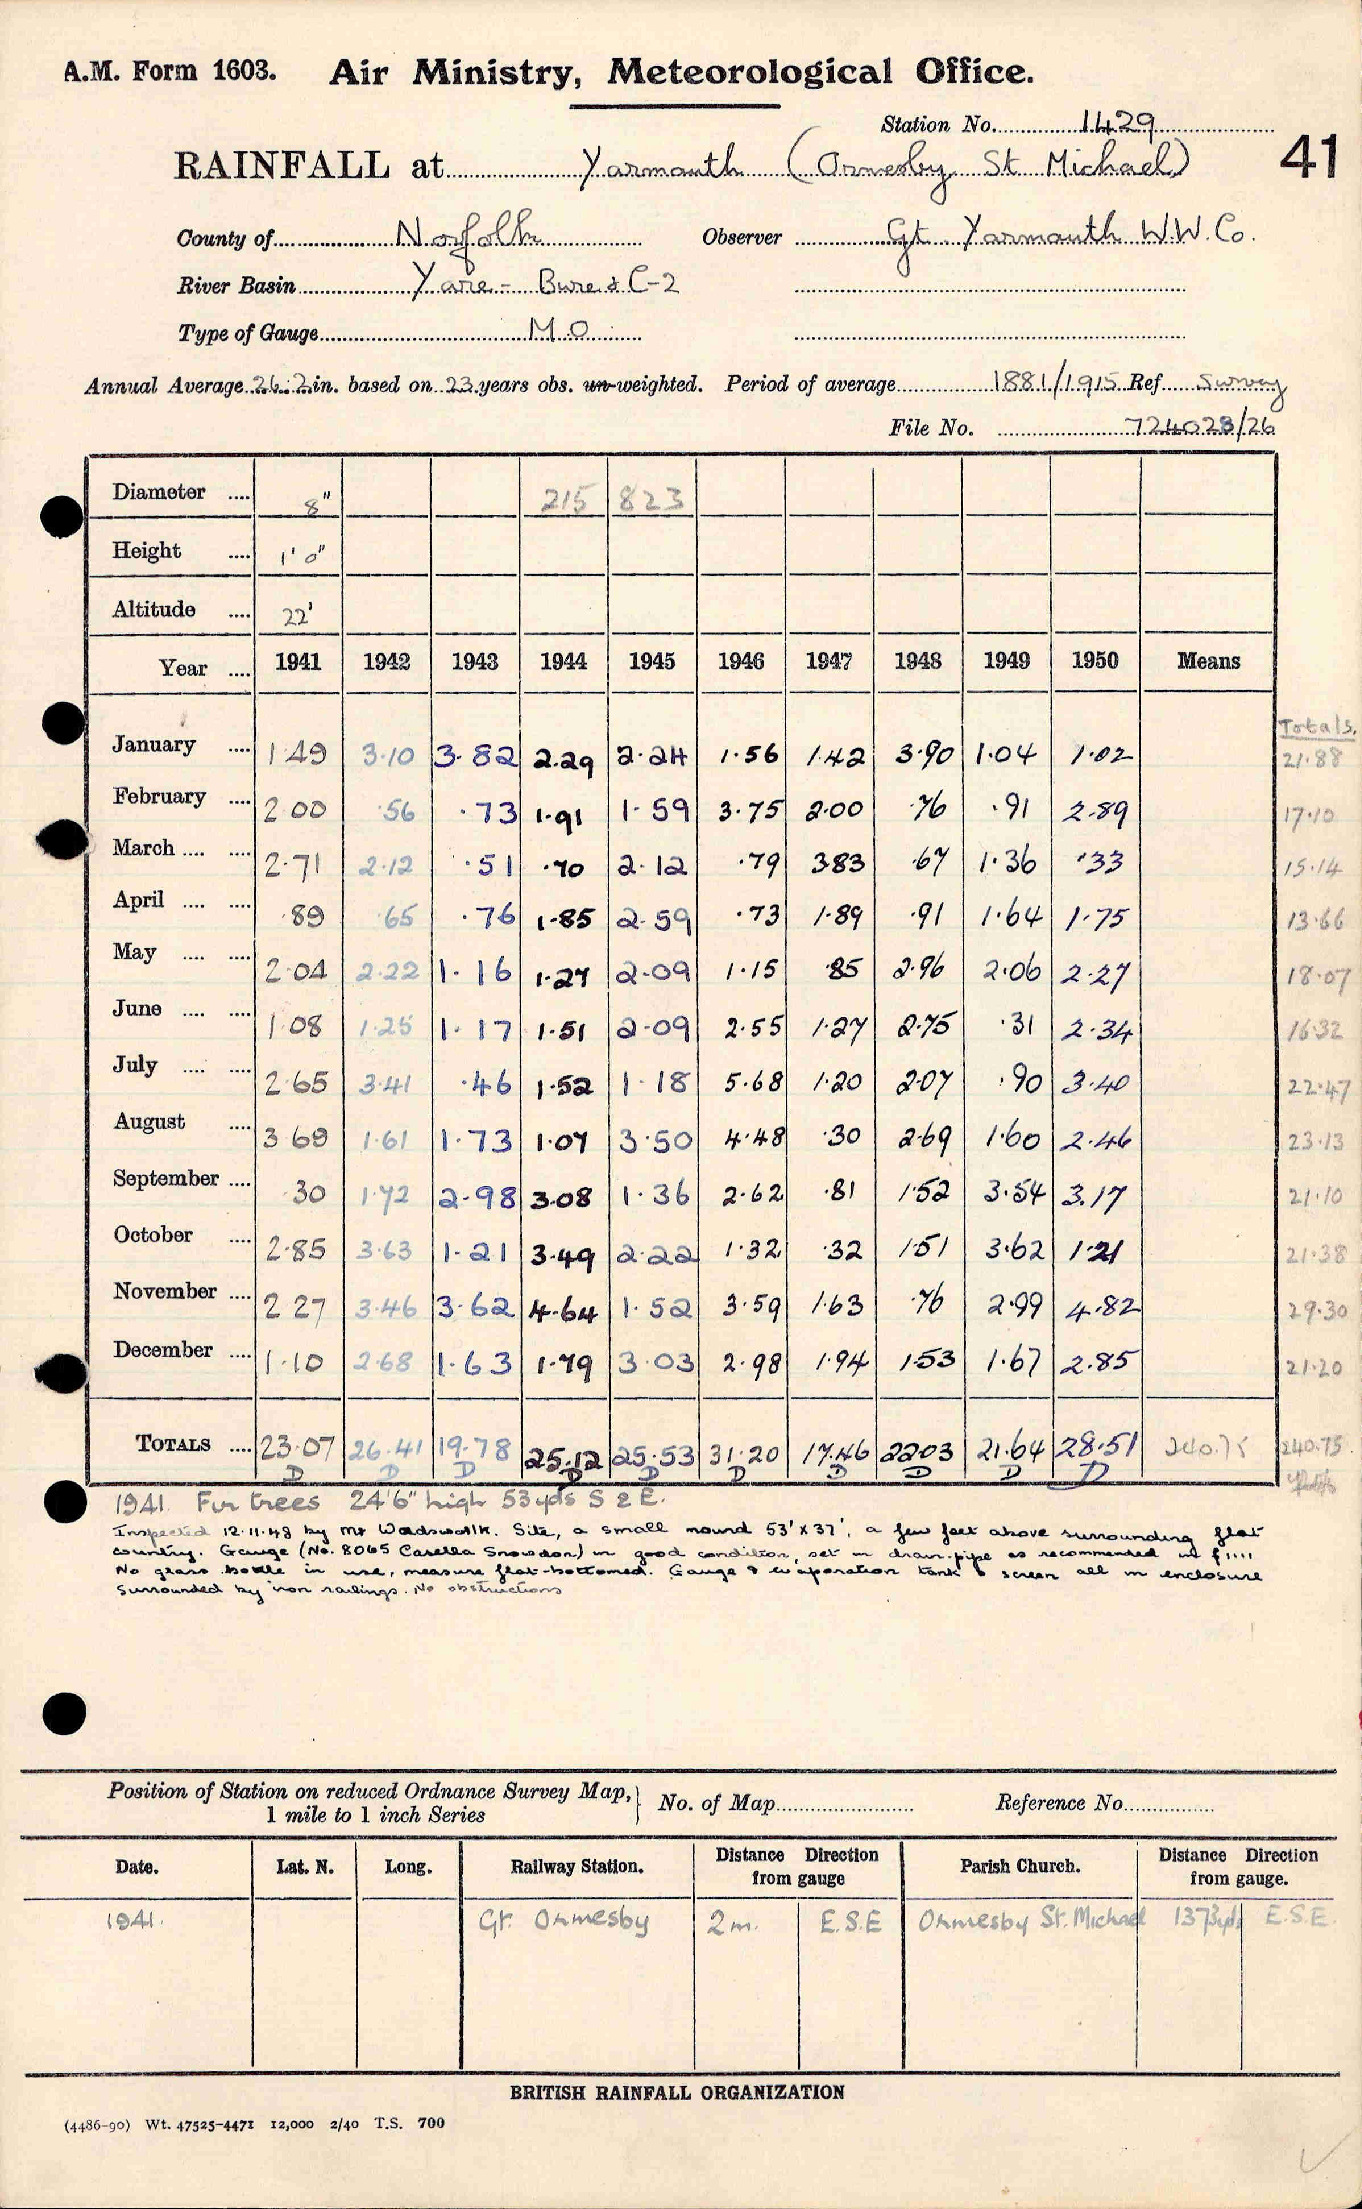 A.M. Form 1603. Air Ministry, Meteorological Office.
Station No. 1429
RAINFALL at Yarmouth (Ormesby St Michael) 41
County of Norfolk Observer Gt. Yarmouth W.W. Co.
River Basin Yare - Bure & C-2
Type of Gauge M.O.
Annual Average 26.2 in. based on 23 years obs. un-weighted. Period of average 1881/1915 Ref. Survey
File No. 724028/26
Diameter .... 8" 215 823
Height .... 1' 0"
Altitude .... 22'
Year .... 1941 1942 1943 1944 1945 1946 1947 1948 1949 1950 Means
Totals.
January .... 1.49 3.10 3.82 2.29 2.24 1.56 1.42 3.90 1.04 1.02 21.88
February .... 2.00 .56 .73 1.91 1.59 3.75 2.00 .76 .91 2.89 17.10
March .... .... 2.71 2.12 .51 .70 2.12 .79 3.83 .67 1.36 .33 15.14
April .... .... .89 .65 .76 1.85 2.59 .73 1.89 .91 1.64 1.75 13.66
May .... .... 2.04 2.22 1.16 1.27 2.09 1.15 .85 2.96 2.06 2.27 18.07
June .... .... 1.08 1.25 1.17 1.51 2.09 2.55 1.27 2.75 .31 2.34 16.32
July .... .... 2.65 3.41 .46 1.52 1.18 5.68 1.20 2.07 .90 3.40 22.47
August .... 3.69 1.61 1.73 1.07 3.50 4.48 .30 2.69 1.60 2.46 23.13
September .... .30 1.72 2.98 3.08 1.36 2.62 .81 1.52 3.54 3.17 21.10
October .... 2.85 3.63 1.21 3.49 2.22 1.32 .32 1.51 3.62 1.21 21.38
November .... 2.27 3.46 3.62 4.64 1.52 3.59 1.63 .76 2.99 4.82 29.30
December .... 1.10 2.68 1.63 1.79 3.03 2.98 1.94 1.53 1.67 2.85 21.20
TOTALS .... 23.07 26.41 19.78 25.12 25.53 31.20 17.46 22.03 21.64 28.51 240.75 240.75
D D D D D D D D D D
1941. Fur trees 24'6" high 53yds S & E.
Inspected 12.11.48 by Mr Wadsworth. Site, a small mound 53' x 37', a few feet above surrounding flat
country. Gauge (No. 8065 Casella Snowdon) in good condition, set in drain-pipe as recommended in f 1111
No glass bottle in use, measure flat-bottomed. Gauge & evaporation tank & screen all in enclosure
surrounded by iron railings. No obstructions
Position of Station on reduced Ordnance Survey Map, 1 mile to 1 inch Series No. of Map Reference No.
Date. Lat. N. Long. Railway Station. Distance from gauge Direction Parish Church. Distance from gauge. Direction
1941. Gt. Ormesby 2m. E.S.E Ormesby St. Michael 1373yds E.S.E.
BRITISH RAINFALL ORGANIZATION
(4486-90) Wt. 47525-4471 12,000 2/40 T.S. 700